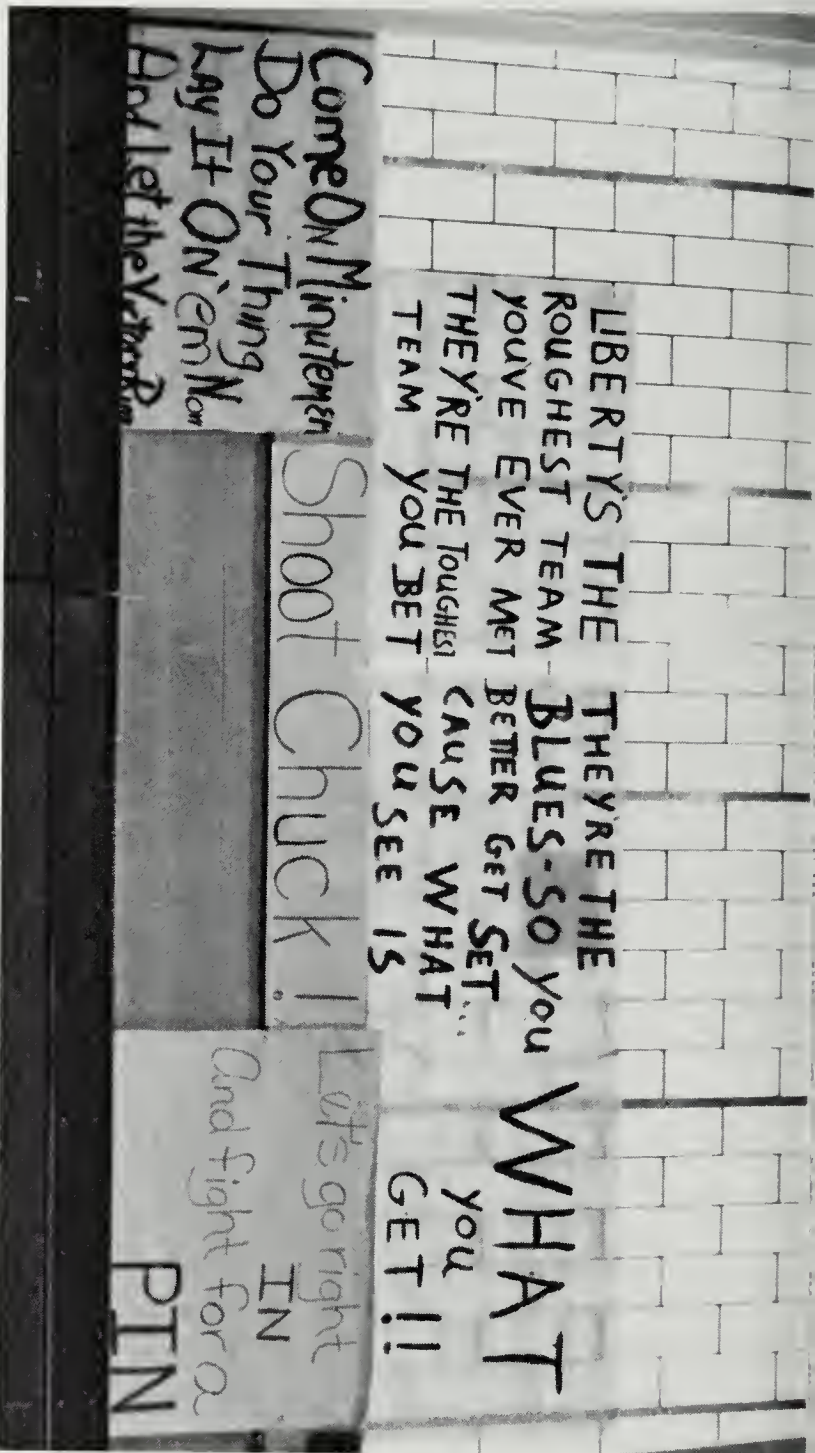 LIBERTY'S THE
ROUGHEST TEAM
YOU'VE EVER MET
THEY'RE THE TOUGHEST
TEAM YOU BET
THEY'RE THE
BLUES-SO YOU
BETTER GET SET...
CAUSE WHAT
YOU SEE IS
WHAT
YOU
GET!!
Come On Minutemen
Do Your Thing
Lay It On 'em Now
And Let the
Shoot Chuck!
Let's go right
IN
and fight for a
PIN